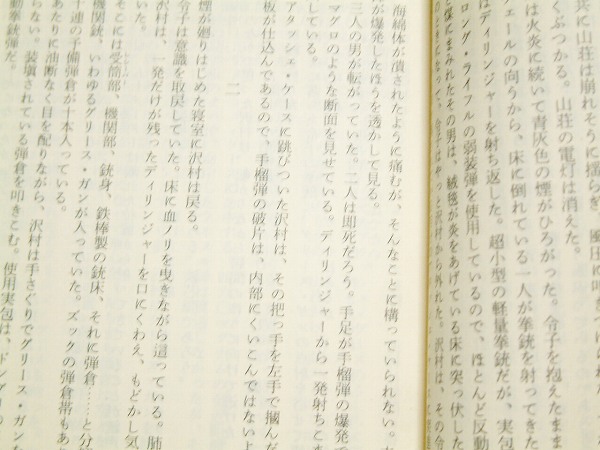 共に山荘は崩れそうに揺らぎ、風圧に
くぶつかる。山荘の電灯は消えた。
は火炎に続いて青灰色の煙がひろがった。令子を抱えたまま
ェールの向うから、床に倒れている一人が拳銃を射ってきた
はディリンジャーを射ち返した。超小型の軽量拳銃だが、実包
ロング・ライフルの弱装弾を使用しているので、ほとんど反動
にまみれたその男は、絨毯が炎をあげている床に突っ伏した
令子はやっと沢村から外れた。沢村は、その令
海綿体が潰されたように痛むが、そんなことに構っていられない。
が爆発したほうを透かして見る。
三人の男が転がっていた。二人は即死だろう。手足が手榴弾の爆発で
マグロのような断面を見せている。ディリンジャーから一発射ちこ
アタッシェ・ケースに跳びついた沢村は、その把っ手を左手で摑んだ
板が仕込んであるので、手榴弾の破片は、内部にくいこんではないよ
二
煙が廻りはじめた寝室に沢村は戻る。
令子は意識を取戻していた。床に血ノリを曳きながら這っている。肺
いた。
沢村は、一発だけが残ったディリンジャーを口にくわえ、もどかし気
そこには受筒部、機関部、銃身、鉄棒製の銃床、それに弾倉……と分
機関銃、いわゆるグリース・ガンが入っていた。ズックの弾倉帯もあ
十連の予備弾倉が十本入っている。
あたりに油断なく目を配りながら、沢村は手さぐりでグリース・ガンを
らない。装填されている弾倉を叩きこむ。使用実包は、
動拳銃弾だ。